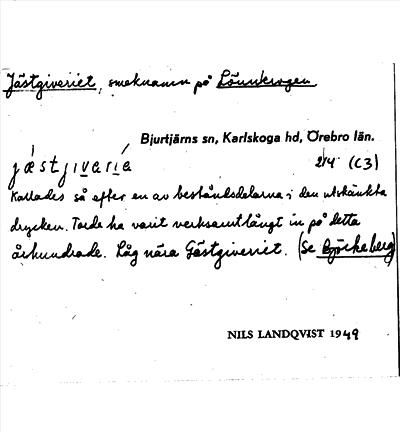 Jästgiveriet, smeknamn på Lönnkrogen
Bjurtjärns sn, Karlskoga hd, Örebro län.
jæstjivaria 2/4 (C3)
Kallades så efter en av beståndsdelarna i den utskänkta
drycken. Torde ha varit verksamt långt in på detta
århundrade. Låg nära Gästgiveriet. (Se Björkeberg)
NILS LANDQVIST 1949